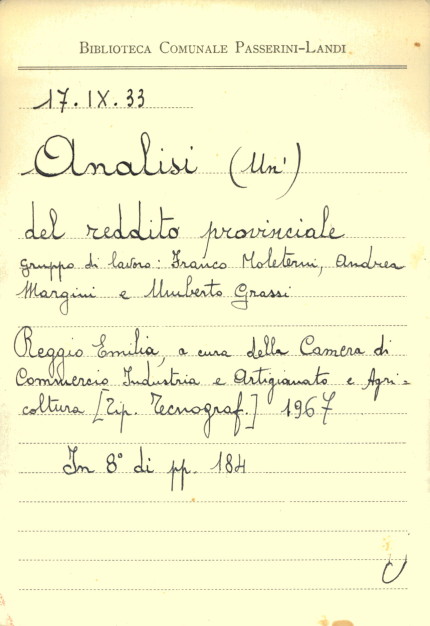 BIBLIOTECA COMUNALE PASSERINI-LANDI
17. IX. 33
Analisi (Un')
del reddito provinciale
gruppo di lavoro: Franco Moleterni, Andrea
Margini e Umberto Grassi
Reggio Emilia, a cura della Camera di
Commercio Industria e Artigianato e Agri=
coltura [Tip. Tecnograf.] 1967
In 8° di pp. 184